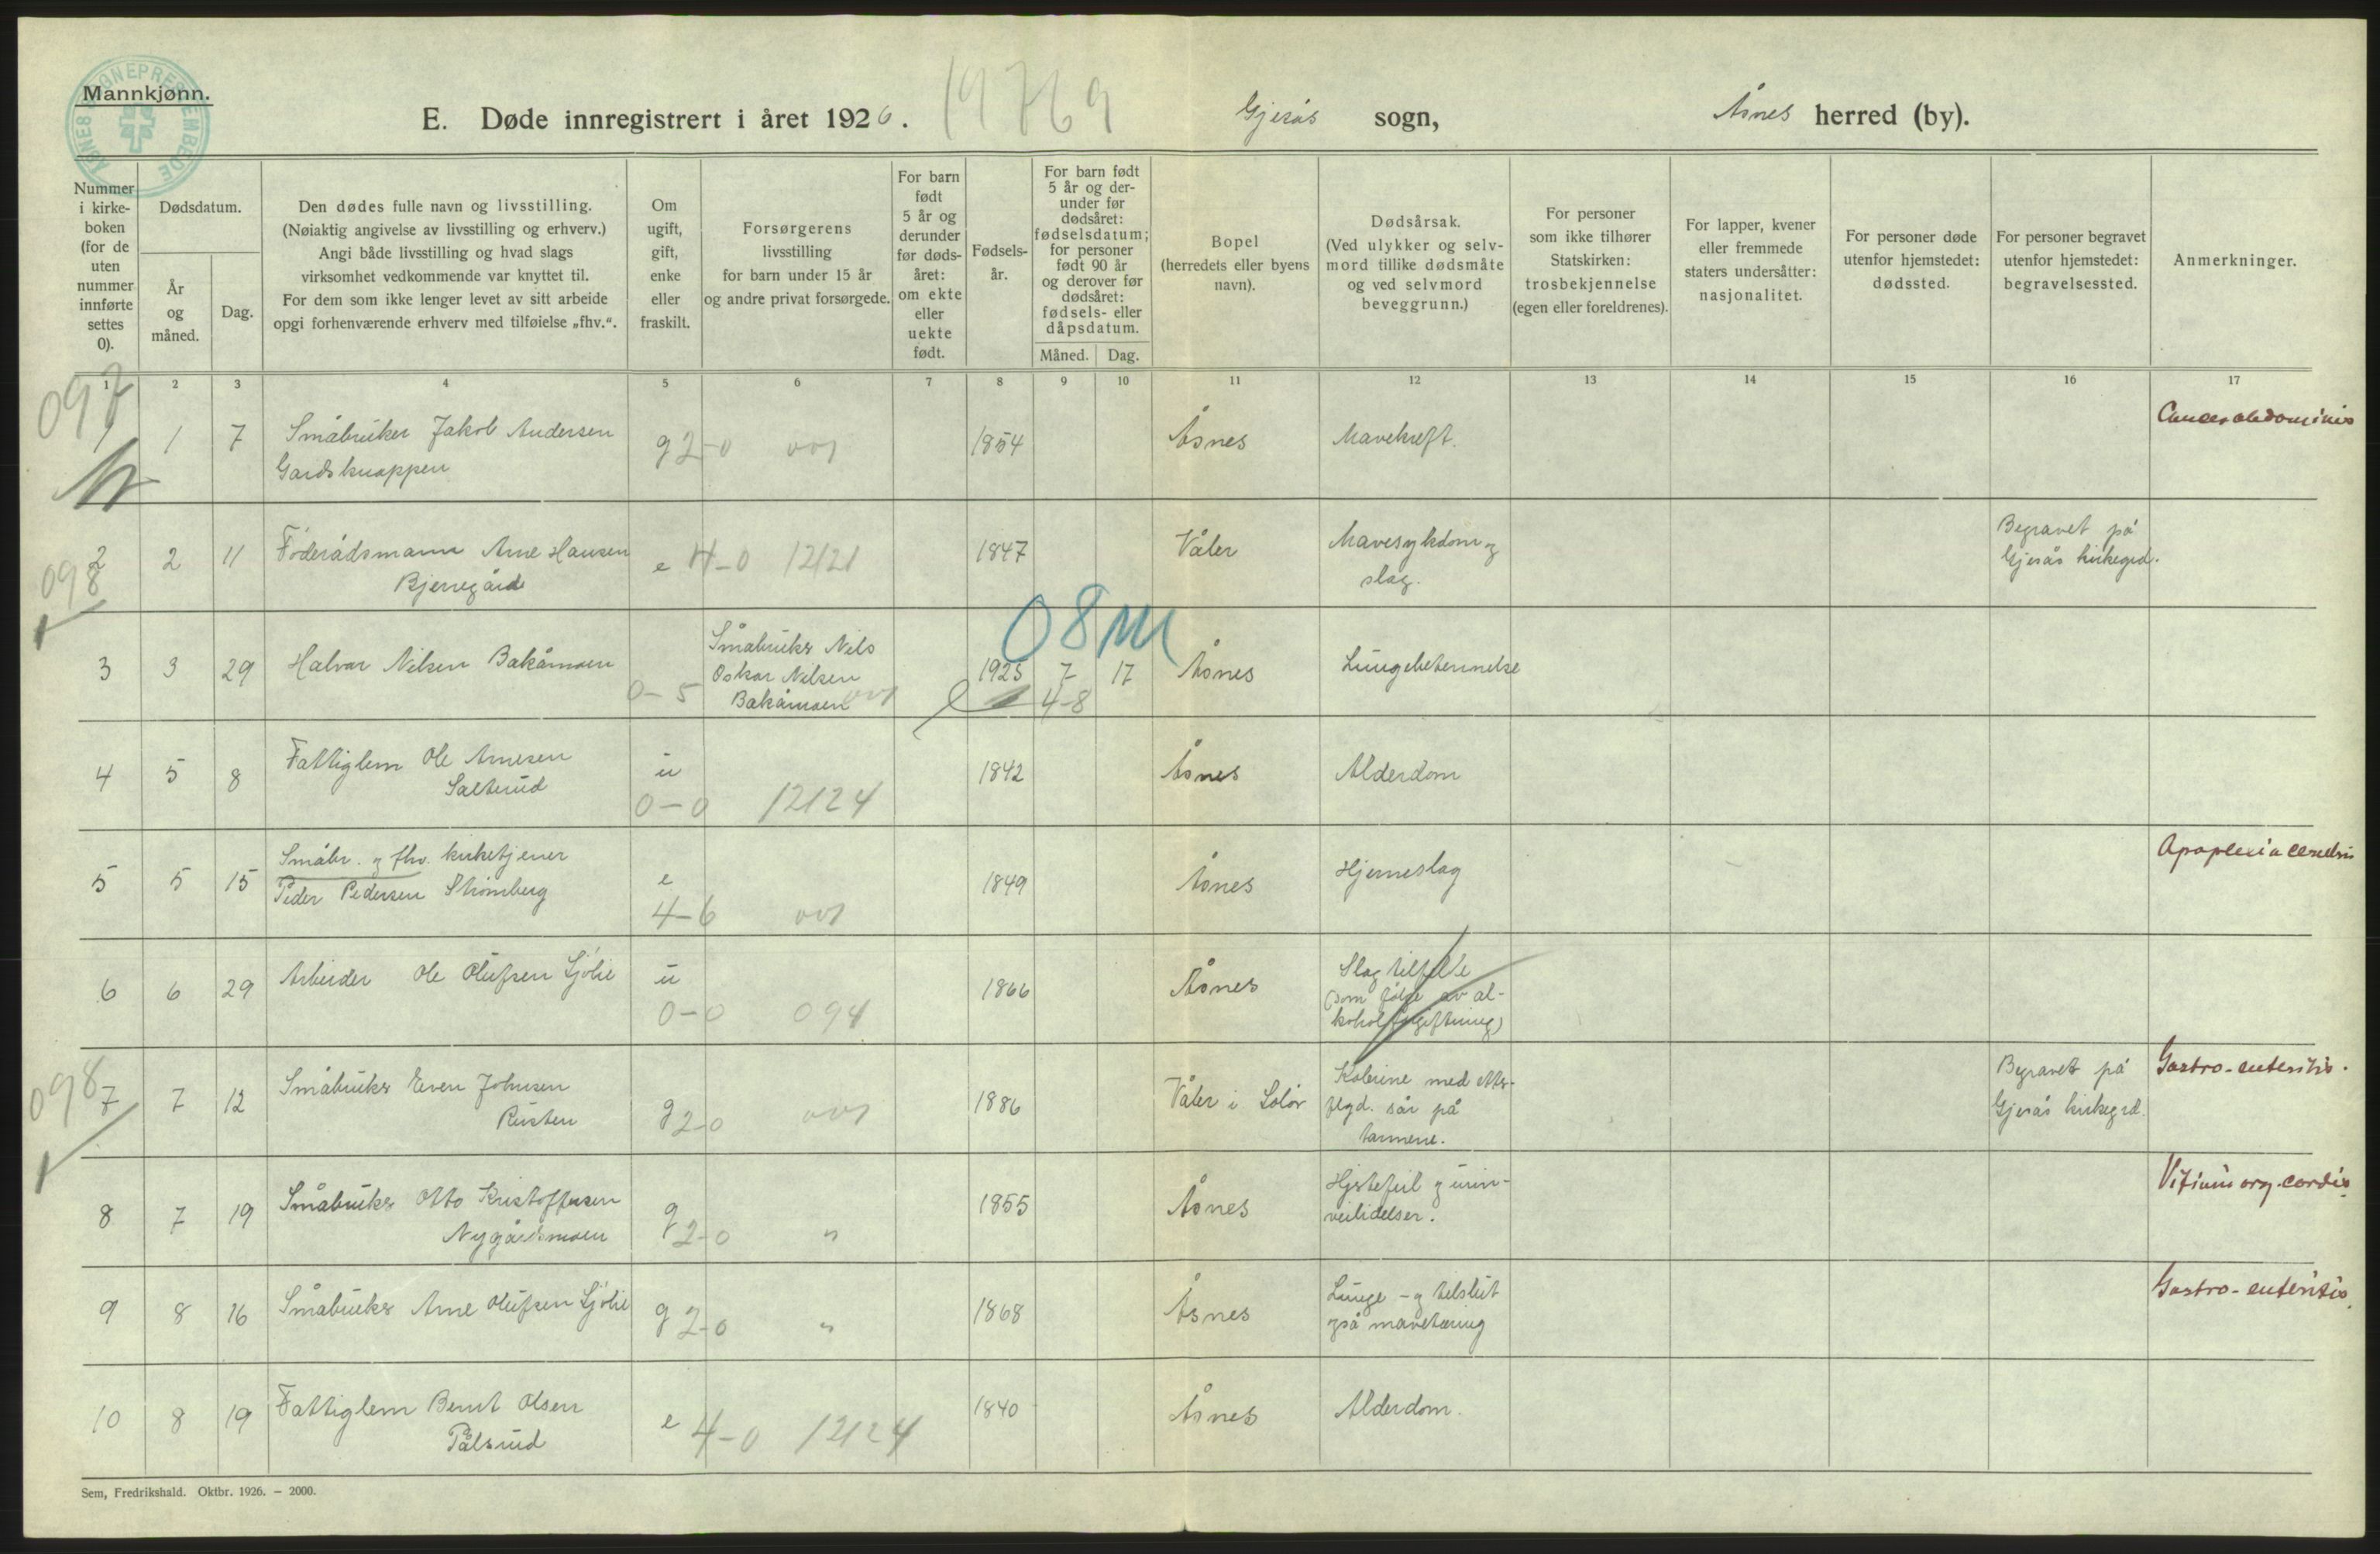 ÅSNES SOGNEPRESTEMBEDE
Mannkjønn.
E. Døde innregistrert i året 1926. 19769 Gjesås sogn, Åsnes herred (by).
Nummer
i kirke-
boken
(for de
uten
nummer
innførte
settes
0).
Dødsdatum.
År
og
måned.
Dag.
Den dødes fulle navn og livsstilling.
(Nøiaktig angivelse av livsstilling og erhverv.)
Angi både livsstilling og hvad slags
virksomhet vedkommende var knyttet til.
For dem som ikke lenger levet av sitt arbeide
opgi forhenværende erhverv med tilføielse „fhv.“.
Om
ugift,
gift,
enke
eller
fraskilt.
Forsørgerens
livsstilling
for barn under 15 år
og andre privat forsørgede.
For barn
født
5 år og
derunder
før døds-
året:
om ekte
eller
uekte
født.
Fødsels-
år.
For barn født
5 år og der-
under før
dødsåret:
fødselsdatum;
for personer
født 90 år
og derover før
dødsåret:
fødsels- eller
dåpsdatum.
Måned. Dag.
Bopel
(herredets eller byens
navn).
Dødsårsak.
(Ved ulykker og selv-
mord tillike dødsmåte
og ved selvmord
beveggrunn.)
For personer
som ikke tilhører
Statskirken:
trosbekjennelse
(egen eller foreldrenes).
For lapper, kvener
eller fremmede
staters undersåtter:
nasjonalitet.
For personer døde
utenfor hjemstedet:
dødssted.
For personer begravet
utenfor hjemstedet:
begravelsessted.
Anmerkninger.
1 2 3 4 5 6 7 8 9 10 11 12 13 14 15 16 17
097
1 1 7 Småbruker Jakob Andersen
Gardsknappen
g 2-0 001 1854 Åsnes Mavekreft.
Cancer abdominis
2 2 11 Føderådsmann Arne Hansen
Bjerregård
e 4-0 12121 1847 Våler Mavesykdom og
slag.
Begravet på
Gjesås kirkegrd.
098
08 M
3 3 29 Halvar Nilsen Bakåmoen
0-5
Småbruker Nils
Oskar Nilsen
Bakåmoen 001
1925 7 17 Åsnes Lungebetennelse
4-8
4 5 8 Fattiglem Ole Arnesen
Sæterud
u
0-0 12124 1842 Åsnes Alderdom
5 5 15 Småbr. og fhv. kirketjener
Peder Pedersen Strømberg
e
4-6 001 1849 Åsnes Hjerneslag
Apoplexia cerebri
6 6 29 Arbeider Ole Olufsen Sjølie
u
0-0 094 1866 Åsnes Slag tilfelle
(som følge av al-
koholforgiftning)
098
7 7 12 Småbruker Even Johnsen
Rusten
g 2-0 001 1886 Våler i Solør Kolerine med etter-
flgd. sår på
tarmene.
Begravet på
Gjesås kirkegrd.
Gastro-enteritis.
8 7 19 Småbruker Otto Kristoffersen
Nygårdsmoen
g 2-0 " 1855 Åsnes Hjertefeil og urin-
veilidelser.
Vitium org. cordis.
9 8 16 Småbruker Arne Olufsen Sjølie
g 2-0 " 1868 Åsnes Lunge - og tilslut
også mavetæring
Gastro-enteritis.
10 8 19 Fattiglem Bernt Olsen
Pålsrud
e 4-0 12124 1840 Åsnes Alderdom.
Sem, Fredrikshald. Oktbr. 1926. – 2000.